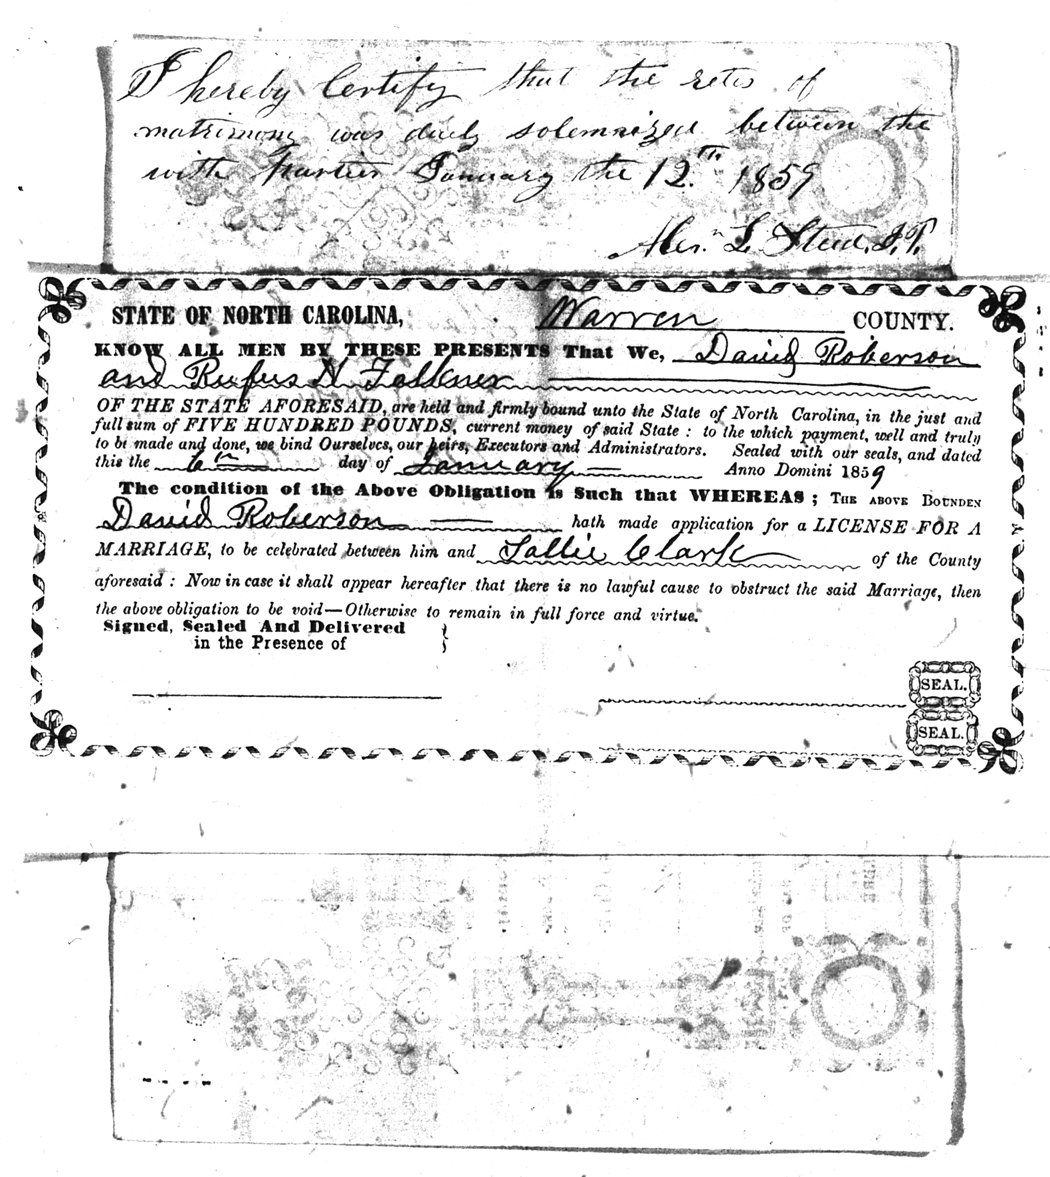 I hereby Certify that the retes of
matrimony was duly solemnized between the
with Parties January the 12.th 1859
L. Steed J.P.
STATE OF NORTH CAROLINA, Warren COUNTY.
KNOW ALL MEN BY THESE PRESENTS That We, David Roberson
and Rufus N Falkner
OF THE STATE AFORESAID, are held and firmly bound unto the State of North Carolina, in the just and
full sum of FIVE HUNDRED POUNDS, current money of said State: to the which payment, well and truly
to be made and done, we bind Ourselves, our heirs, Executors and Administrators. Sealed with our seals, and dated
this the 6th day of January Anno Domini 1859
The condition of the Above Obligation is Such that WHEREAS; THE ABOVE BOUNDEN
David Roberson hath made application for a LICENSE FOR A
MARRIAGE, to be celebrated between him and Sallie Clark of the County
aforesaid: Now in case it shall appear hereafter that there is no lawful cause to obstruct the said Marriage, then
the above obligation to be void—Otherwise to remain in full force and virtue.
Signed, Sealed And Delivered
in the Presence of
SEAL.
SEAL.